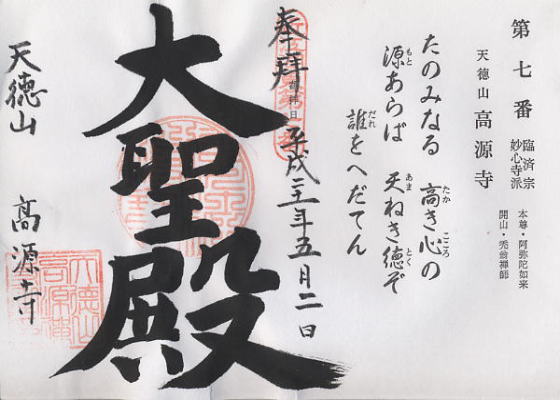 第七番 臨済宗 妙心寺派 本尊・阿弥陀如来
天徳山 高源寺 開山・禿翁禅師
たのみなる 高き心の
源あらば 天ねき徳ぞ
誰をへだてん
奉拝 平成二十一年五月二日
大聖殿
天徳山 高源寺